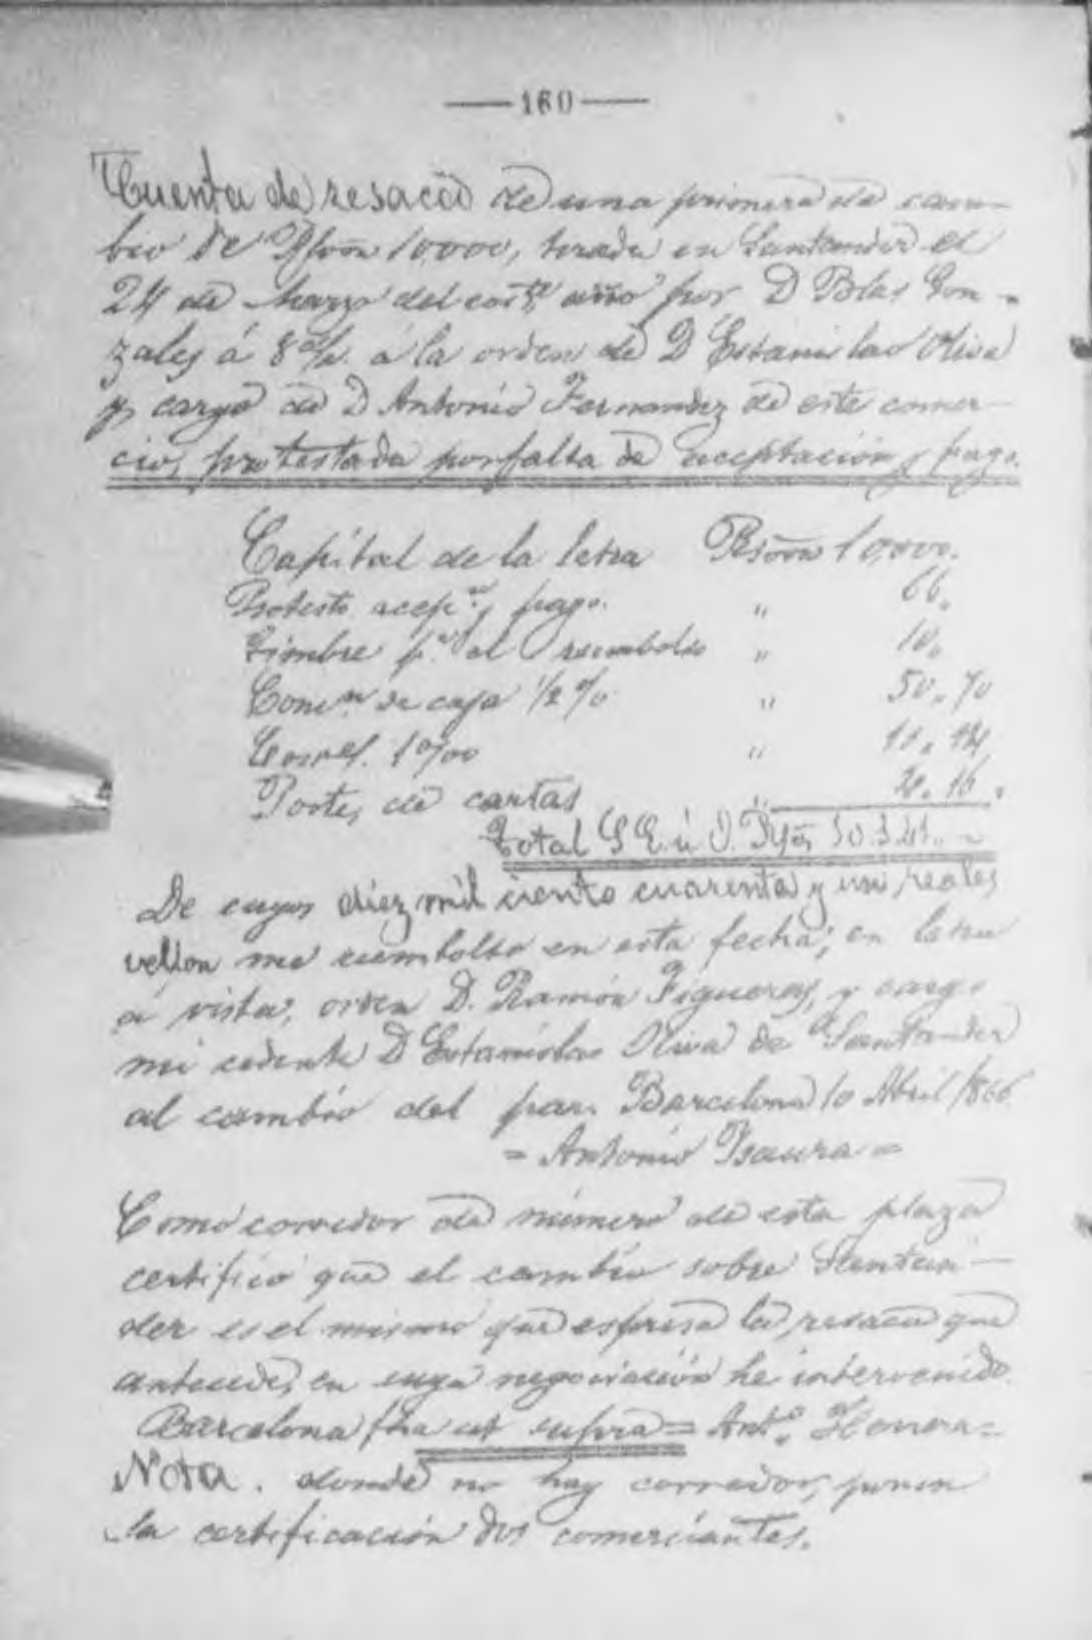 160
Cuenta de resaca de una primera de cam-
bio de Rsvon 10,000, tirada en Santander el
24 de Marzo del corte año por D Blas Gon-
zales á 8 d/v. á la orden de D Estanislao Oliva
y cargo de D Antonio Fernandez de este comer-
cio, protestada por falta de aceptación y pago.
Capital de la letra Rsvon 10,000.
Protesto acepon y pago. " 66"
Timbre pa el reembolso " 10"
Comon de caja 1/2 % " 50"70
Correj. 1 0/00 "
Portes de cartas "
Total S. E. ú O. 10.141"
De cuyos diez mil ciento cuarenta y un reales
vellon me reembolso en esta fecha, en letra
á vista, orden D. Ramón Figueras, y cargo
mi cedente D Estanislao Oliva de Santander
al cambio del par. Barcelona 10 Abril 1866
= Antonio Isaura =
Como corredor de número de esta plaza
certifico que el cambio sobre Santan-
der es el mismo que espresa la resaca que
antecede, en cuya negociación he intervenido.
Barcelona fha ut supra = Anto
Nota. donde no hay corredor, ponen
la certificación dos comerciantes.